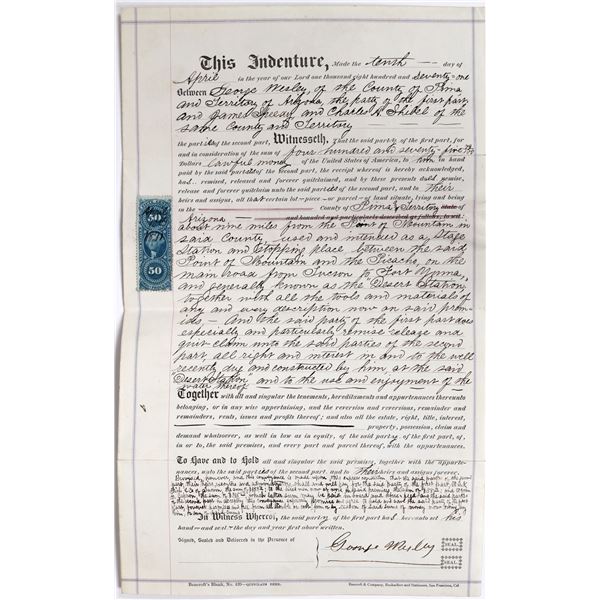 This Indenture, Made the tenth day of
April in the year of our Lord one thousand eight hundred and seventy-one
Between George Wesley, of the County of Pima
and Territory of Arizona, the party of the first part
and James Speedy and Charles H. Shibel of the
same County and Territory
the parties of the second part, Witnesseth, That the said party of the first part, for
and in consideration of the sum of four hundred and seventy-five
Dollars lawful money of the United States of America, to him in hand
paid by the said parties of the second part, the receipt whereof is hereby acknowledged,
has remised, released and forever quitclaimed, and by these presents does remise,
release and forever quitclaim unto the said parties of the second part, and to their
heirs and assigns, all that certain lot, piece or parcel of land situate, lying and being
in the County of Pima & Territory State of
Arizona and bounded and particularly described as follows, to wit:
about nine miles from the Point of Mountain in
said County, used and intended as a Stage
Station and Stopping place between the said
Point of Mountain and the Picacho, on the
main road from Tucson to Fort Yuma,
and generally known as the Desert Station,
together with all the tools and materials of
any and every description now on said prem-
ises – And the said party of the first part does
especially and particularly remise release and
quit claim unto the said parties of the second
part, all right and interest in and to the well
recently dug and constructed by him, at the said
"Desert Station" and to the use and enjoyment of the
water thereof
Together with all and singular the tenements, hereditaments and appurtenances thereunto
belonging, or in any wise appertaining, and the reversion and reversions, remainder and
remainders, rents, issues and profits thereof; and also all the estate, right, title, interest,
property, possession, claim and
demand whatsoever, as well in law as in equity, of the said party of the first part, of,
in or to, the said premises, and every part and parcel thereof, with the appurtenances.
To Have and to Hold all and singular the said premises, together with the appurte-
nances, unto the said parties of the second part, and to their heirs and assigns forever.
Provided, however, and this conveyance is made upon this express condition that the said parties of the
In Witness Whereof, the said party of the first part has hereunto set his
hand and seal the day and year first above written.
Signed, Sealed and Delivered in the Presence of
George Wesley
SEAL
SEAL
50
50
Bancroft's Blank, No. 439—QUITCLAIM DEED.
Bancroft & Company, Booksellers and Stationers, San Francisco, Cal